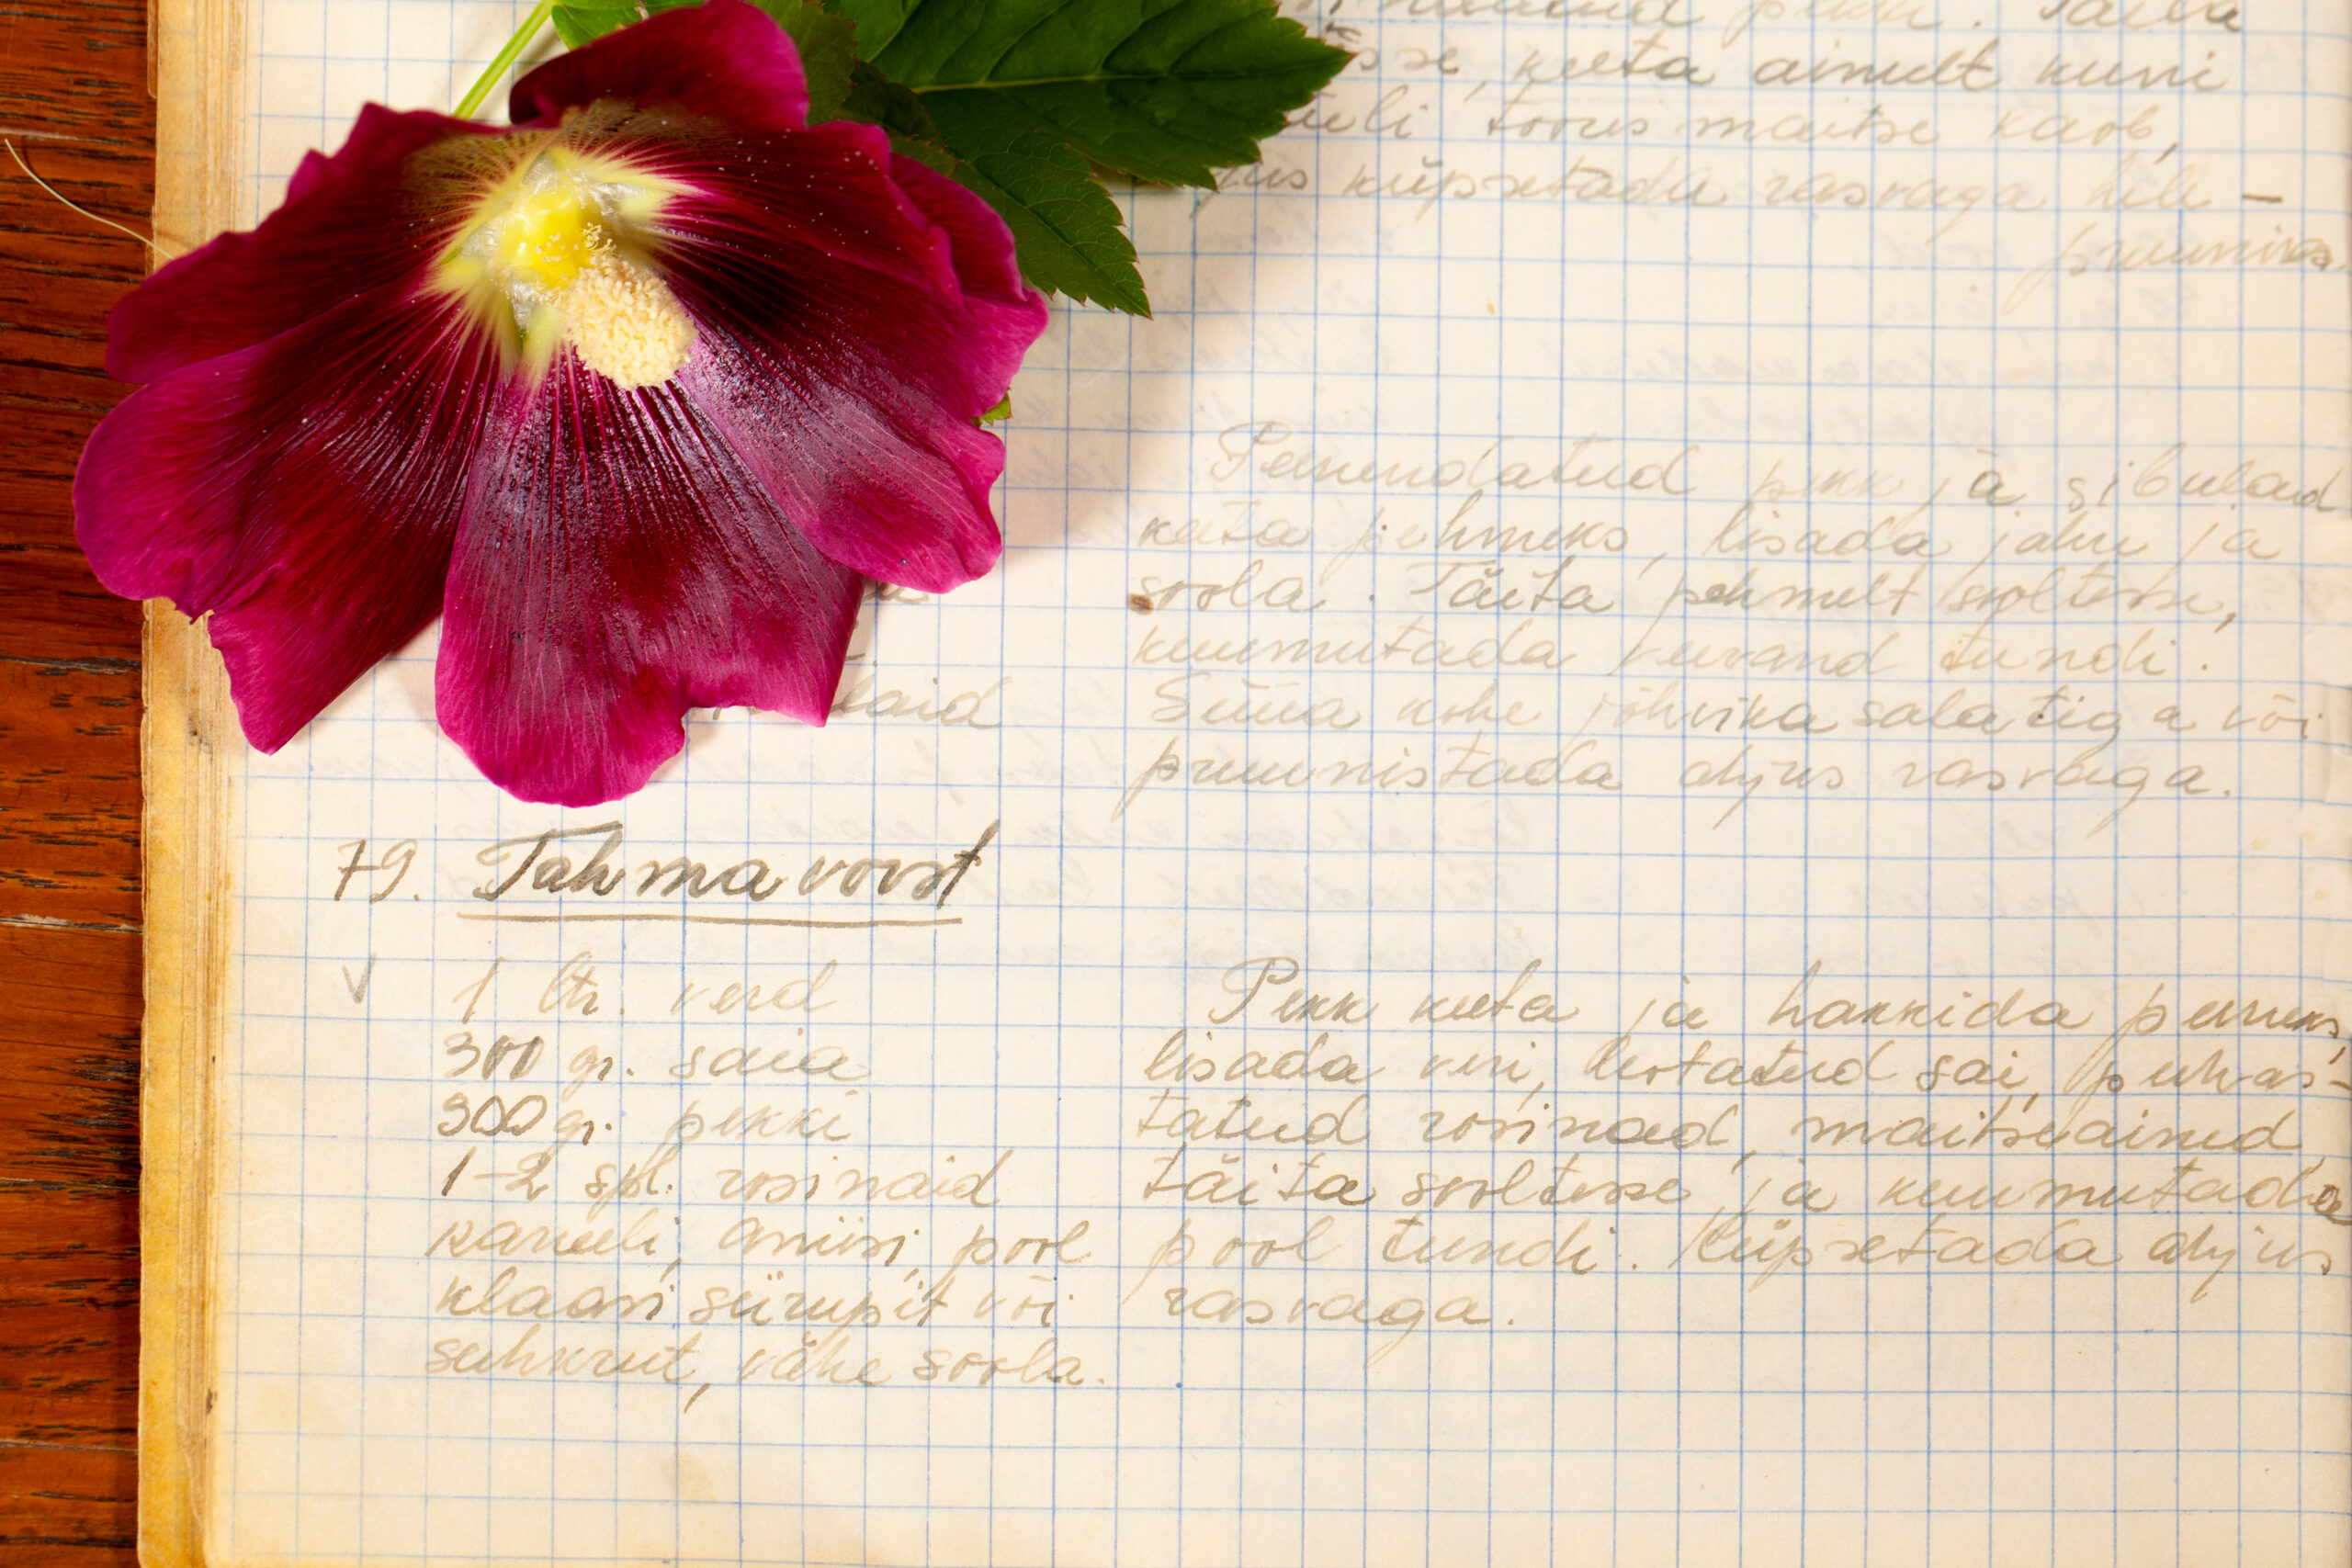 keeta ainult kuni
toorus maitse kaob,
küpsetada rasvaga hele-
pruuniks.
Peenendatud pekk ja sibulad
keeta pehmeks, lisada jahu ja
soola. Täita pehmelt sooltesse,
kuumutada veerand tundi.
Süüa kohe jõhvika salatiga või
pruunistada ahjus rasvaga.
79. Tahmavorst
V 1 ltr. verd
300 gr. saia
300 gr. pekki
1-2 spl. rosinaid
kaneeli, aniisi, pool
klaasi siirupit või
suhkrut, vähe soola.
Pekk keeta ja hakkida peeneks,
lisada veri, leotatud sai, puhas-
tatud rosinad, maitseained,
täita sooltesse ja kuumutada
pool tundi. Küpsetada ahjus
rasvaga.